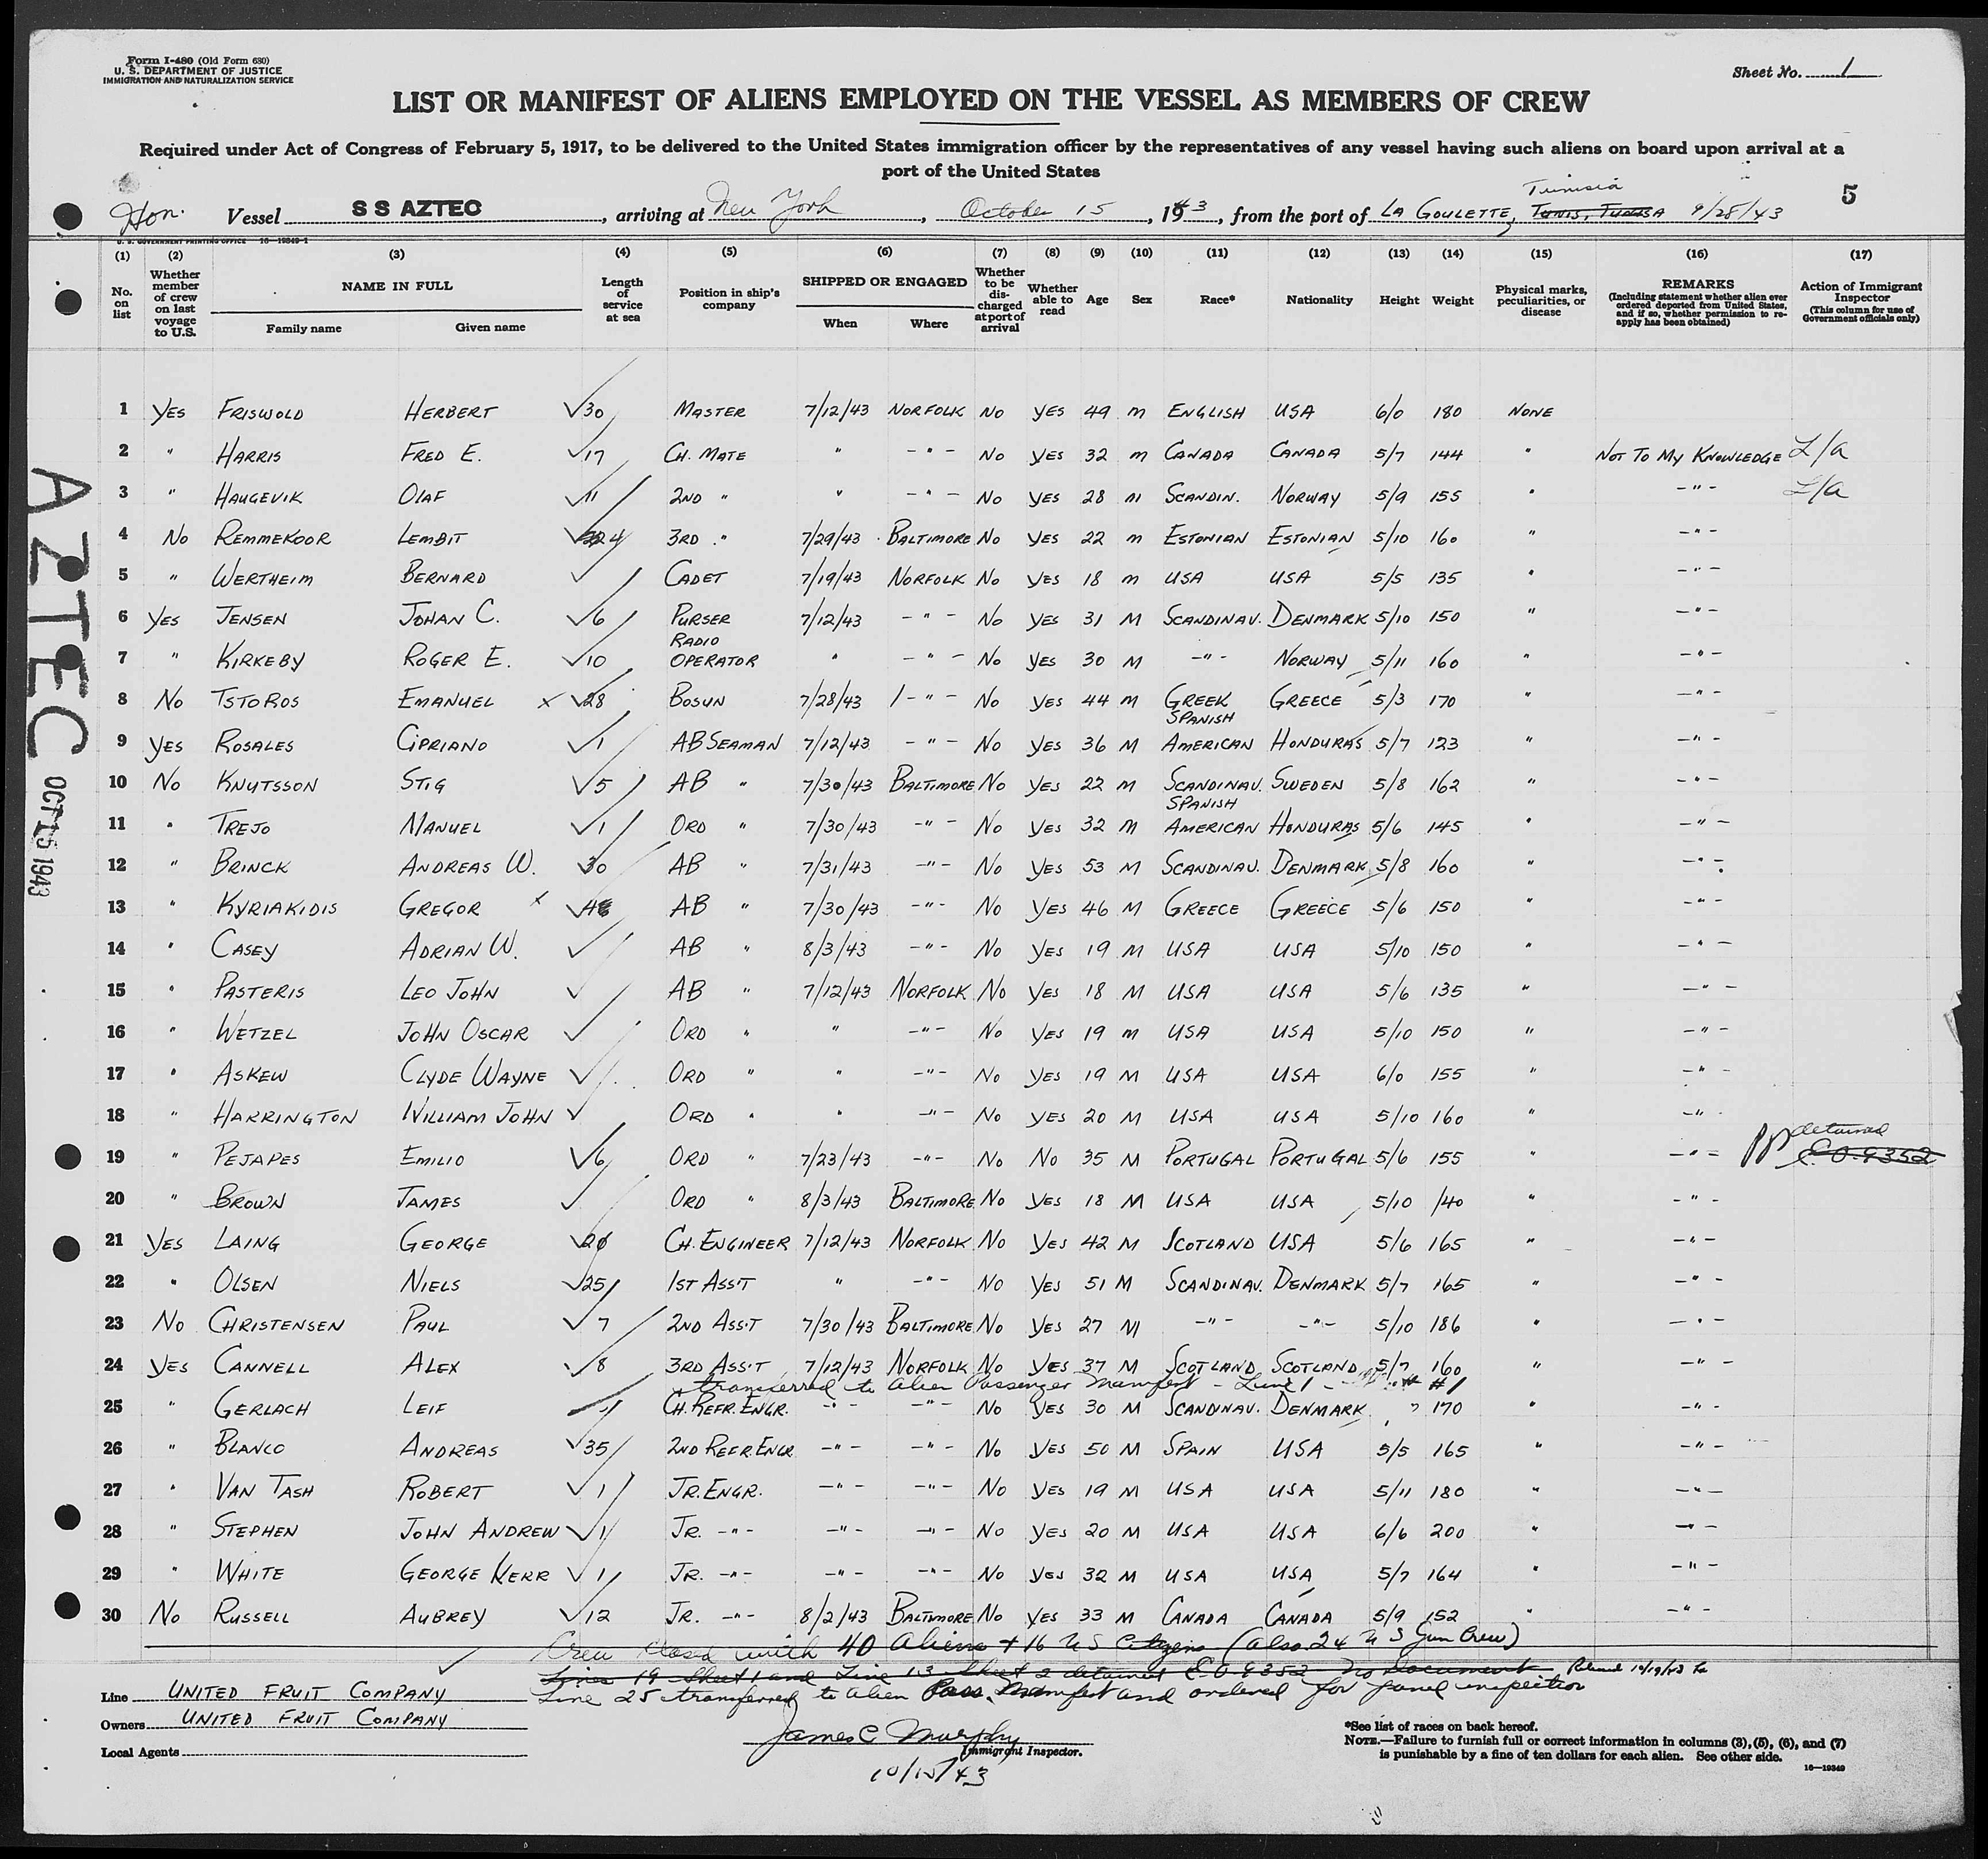 Form I-480 (Old Form 680)
U. S. DEPARTMENT OF JUSTICE
IMMIGRATION AND NATURALIZATION SERVICE
Sheet No. 1
LIST OR MANIFEST OF ALIENS EMPLOYED ON THE VESSEL AS MEMBERS OF CREW
Required under Act of Congress of February 5, 1917, to be delivered to the United States immigration officer by the representatives of any vessel having such aliens on board upon arrival at a
port of the United States
Hon. Vessel SS AZTEC, arriving at New York, October 15, 1943, from the port of LA GOULETTE, TUNIS, TUNISA Tunisia 9/28/43
5
U. S. GOVERNMENT PRINTING OFFICE 16—19349-1
(1) (2) (3) (4) (5) (6) (7) (8) (9) (10) (11) (12) (13) (14) (15) (16) (17)
No. on list
Whether member of crew on last voyage to U.S.
NAME IN FULL
Family name Given name
Length of service at sea
Position in ship's company
SHIPPED OR ENGAGED
When Where
Whether to be discharged at port of arrival
Whether able to read
Age
Sex
Race*
Nationality
Height
Weight
Physical marks, peculiarities, or disease
REMARKS
(Including statement whether alien ever ordered deported from United States, and if so, whether permission to reapply has been obtained)
Action of Immigrant Inspector
(This column for use of Government officials only)
1 YES FRISWOLD HERBERT √30 MASTER 7/12/43 NORFOLK NO YES 49 M ENGLISH USA 6/0 180 NONE
2 " HARRIS FRED E. √17 CH. MATE " -"- NO YES 32 M CANADA CANADA 5/7 144 " NOT TO MY KNOWLEDGE L/a
3 " HAUGEVIK OLAF √11 2ND " " -"- NO YES 28 M SCANDIN. NORWAY 5/9 155 " -"- L/a
4 NO REMMEKOOR LEMBIT √ 4 3RD " 7/29/43 BALTIMORE NO YES 22 M ESTONIAN ESTONIAN 5/10 160 " -"-
5 " WERTHEIM BERNARD √ CADET 7/19/43 NORFOLK NO YES 18 M USA USA 5/5 135 " -"-
6 YES JENSEN JOHAN C. √6 PURSER 7/12/43 -"- NO YES 31 M SCANDINAV. DENMARK 5/10 150 " -"-
7 " KIRKEBY ROGER E. √10 RADIO OPERATOR " -"- NO YES 30 M -"- NORWAY 5/11 160 " -"-
8 NO TSTOROS EMANUEL x √28 BOSUN 7/28/43 -"- NO YES 44 M GREEK GREECE 5/3 170 " -"-
9 YES ROSALES CIPRIANO √1 AB SEAMAN 7/12/43 -"- NO YES 36 M SPANISH AMERICAN HONDURAS 5/7 123 " -"-
10 NO KNUTSSON STIG √5 AB " 7/30/43 BALTIMORE NO YES 22 M SCANDINAV. SWEDEN 5/8 162 " -"-
11 " TREJO MANUEL √1 ORD " 7/30/43 -"- NO YES 32 M SPANISH AMERICAN HONDURAS 5/6 145 " -"-
12 " BRINCK ANDREAS W. √30 AB " 7/31/43 -"- NO YES 53 M SCANDINAV. DENMARK 5/8 160 " -"-
13 " KYRIAKIDIS GREGOR x √4 AB " 7/30/43 -"- NO YES 46 M GREECE GREECE 5/6 150 " -"-
14 " CASEY ADRIAN W. √ AB " 8/3/43 -"- NO YES 19 M USA USA 5/10 150 " -"-
15 " PASTERIS LEO JOHN √ AB " 7/12/43 NORFOLK NO YES 18 M USA USA 5/6 135 " -"-
16 " WETZEL JOHN OSCAR √ ORD " " -"- NO YES 19 M USA USA 5/10 150 " -"-
17 " ASKEW CLYDE WAYNE √ ORD " " -"- NO YES 19 M USA USA 6/0 155 " -"-
18 " HARRINGTON WILLIAM JOHN √ ORD " " -"- NO YES 20 M USA USA 5/10 160 " -"-
19 " PEJAPES EMILIO √6 ORD " 7/23/43 -"- NO NO 35 M PORTUGAL PORTUGAL 5/6 155 " -"- detained E.O. 9352
20 " BROWN JAMES √ ORD " 8/3/43 BALTIMORE NO YES 18 M USA USA 5/10 140 " -"-
21 YES LAING GEORGE √20 CH. ENGINEER 7/12/43 NORFOLK NO YES 42 M SCOTLAND USA 5/6 165 " -"-
22 " OLSEN NIELS √25 1ST ASS'T " -"- NO YES 51 M SCANDINAV. DENMARK 5/7 165 " -"-
23 NO CHRISTENSEN PAUL √7 2ND ASS'T 7/30/43 BALTIMORE NO YES 27 M -"- -"- 5/10 186 " -"-
24 YES CANNELL ALEX √8 3RD ASS'T 7/12/43 NORFOLK NO YES 37 M SCOTLAND SCOTLAND 5/7 160 " -"-
transferred to Alien Passenger Manifest - Line 1 - #1
25 " GERLACH LEIF CH. REFR. ENGR. -"- -"- NO YES 30 M SCANDINAV. DENMARK 170 " -"-
26 " BLANCO ANDREAS √35 2ND REFR. ENGR -"- -"- NO YES 50 M SPAIN USA 5/5 165 " -"-
27 " VAN TASH ROBERT √1 JR. ENGR. -"- -"- NO YES 19 M USA USA 5/11 180 " -"-
28 " STEPHEN JOHN ANDREW √1 JR. -"- -"- -"- NO YES 20 M USA USA 6/6 200 " -"-
29 " WHITE GEORGE KERR √1 JR. -"- -"- -"- NO YES 32 M USA USA 5/7 164 " -"-
30 NO RUSSELL AUBREY √12 JR. -"- 8/2/43 BALTIMORE NO YES 33 M CANADA CANADA 5/9 152 " -"-
Crew closed with 40 Aliens + 16 US Citizens (also 24 U S Gun Crew)
Lines 19 Sheet 1 and Line 13 Sheet 2 detained E.O. 9352 no documents Released 10/19/43
Line 25 transferred to Alien Pass. Manifest and ordered for panel inspection
Line UNITED FRUIT COMPANY
Owners UNITED FRUIT COMPANY
Local Agents
James C Murphy
Immigrant Inspector.
10/15/43
*See list of races on back hereof.
NOTE.—Failure to furnish full or correct information in columns (3), (5), (6), and (7)
is punishable by a fine of ten dollars for each alien. See other side.
16—19349
AZTEC
OCT 15 1943